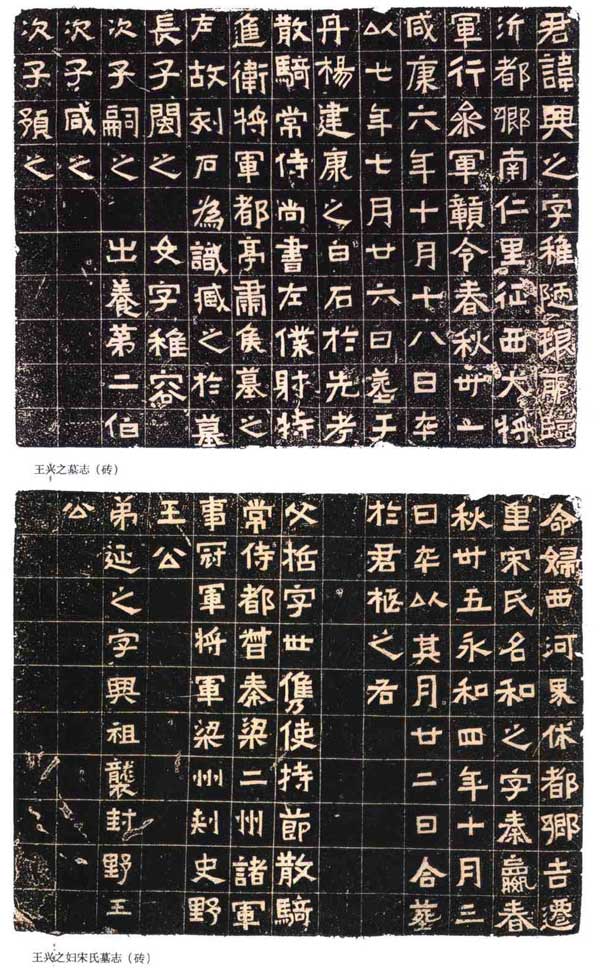 君諱興之字稚陋琅耶臨
沂都鄉南仁里征西大將
軍行參軍贛令春秋卅一
咸康六年十月十八日卒
以七年七月廿六日葬于
丹楊建康之白石於先考
散騎常侍尚書左僕射特
進衛將軍都亭肅侯墓之
左故刻石為識臧之於墓
長子閩之 女字稚容
次子嗣之 出養第二伯
次子咸之
次子預之
王兴之墓志（砖）
命婦西河界休都鄉吉遷
里宋氏名和之字秦嬴春
秋卅五永和四年十月三
日卒以其月廿二日合葬
於君柩之右
父哲字世儁使持節散騎
常侍都督秦梁二州諸軍
事冠軍將軍梁州刾史野
王公
弟延之字興祖襲封野王
公
王兴之妇宋氏墓志（砖）